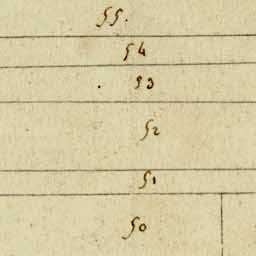 55.
54
53
52
51
50